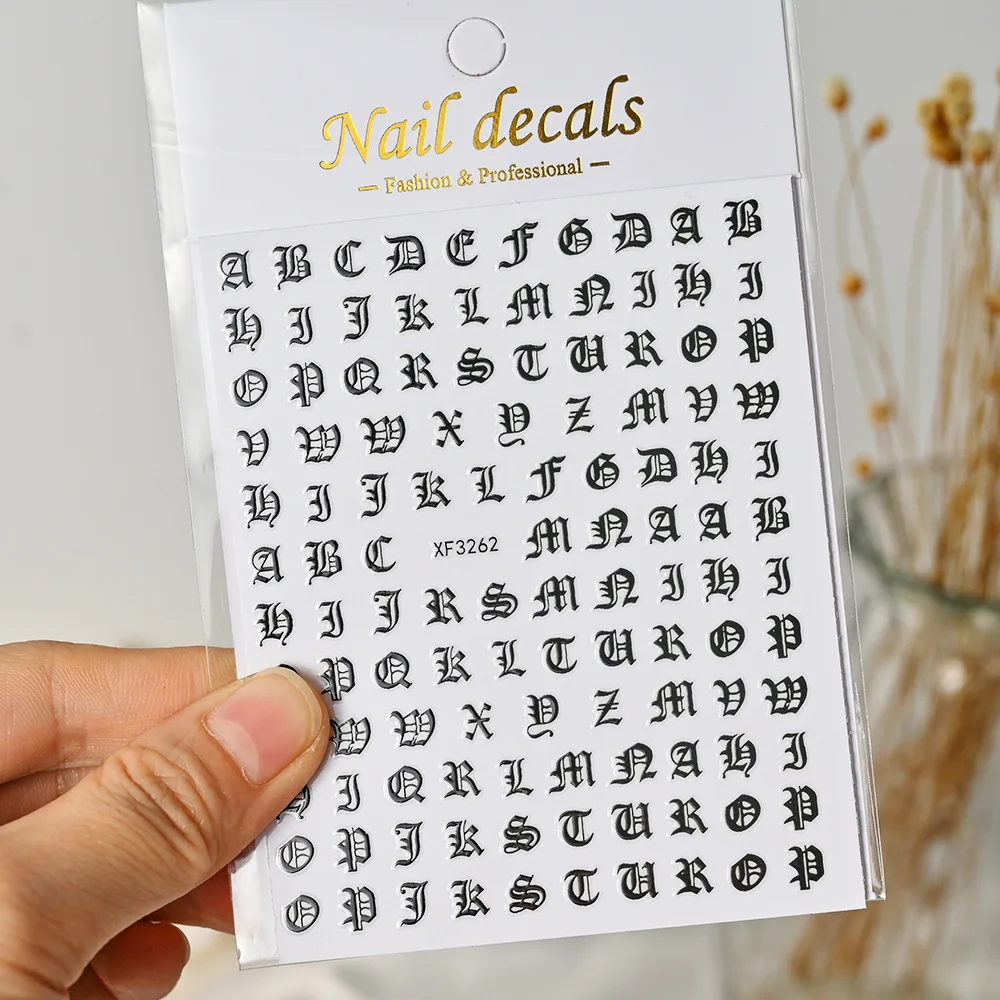 Nail decals
— Fashion & Professional —
A B C D E F G D A B
H I J K L M N I H I
O P Q R S T U R O P
V W W X Y Z M V W
H I J K L F G D H I
A B C XF3262 M N A A B
H I J R S M N I H I
P Q K L T U R O P
W W X Y Z M V W
H I Q R L M N A H I
O P J K S T U R O P
O P J K S T U R O P